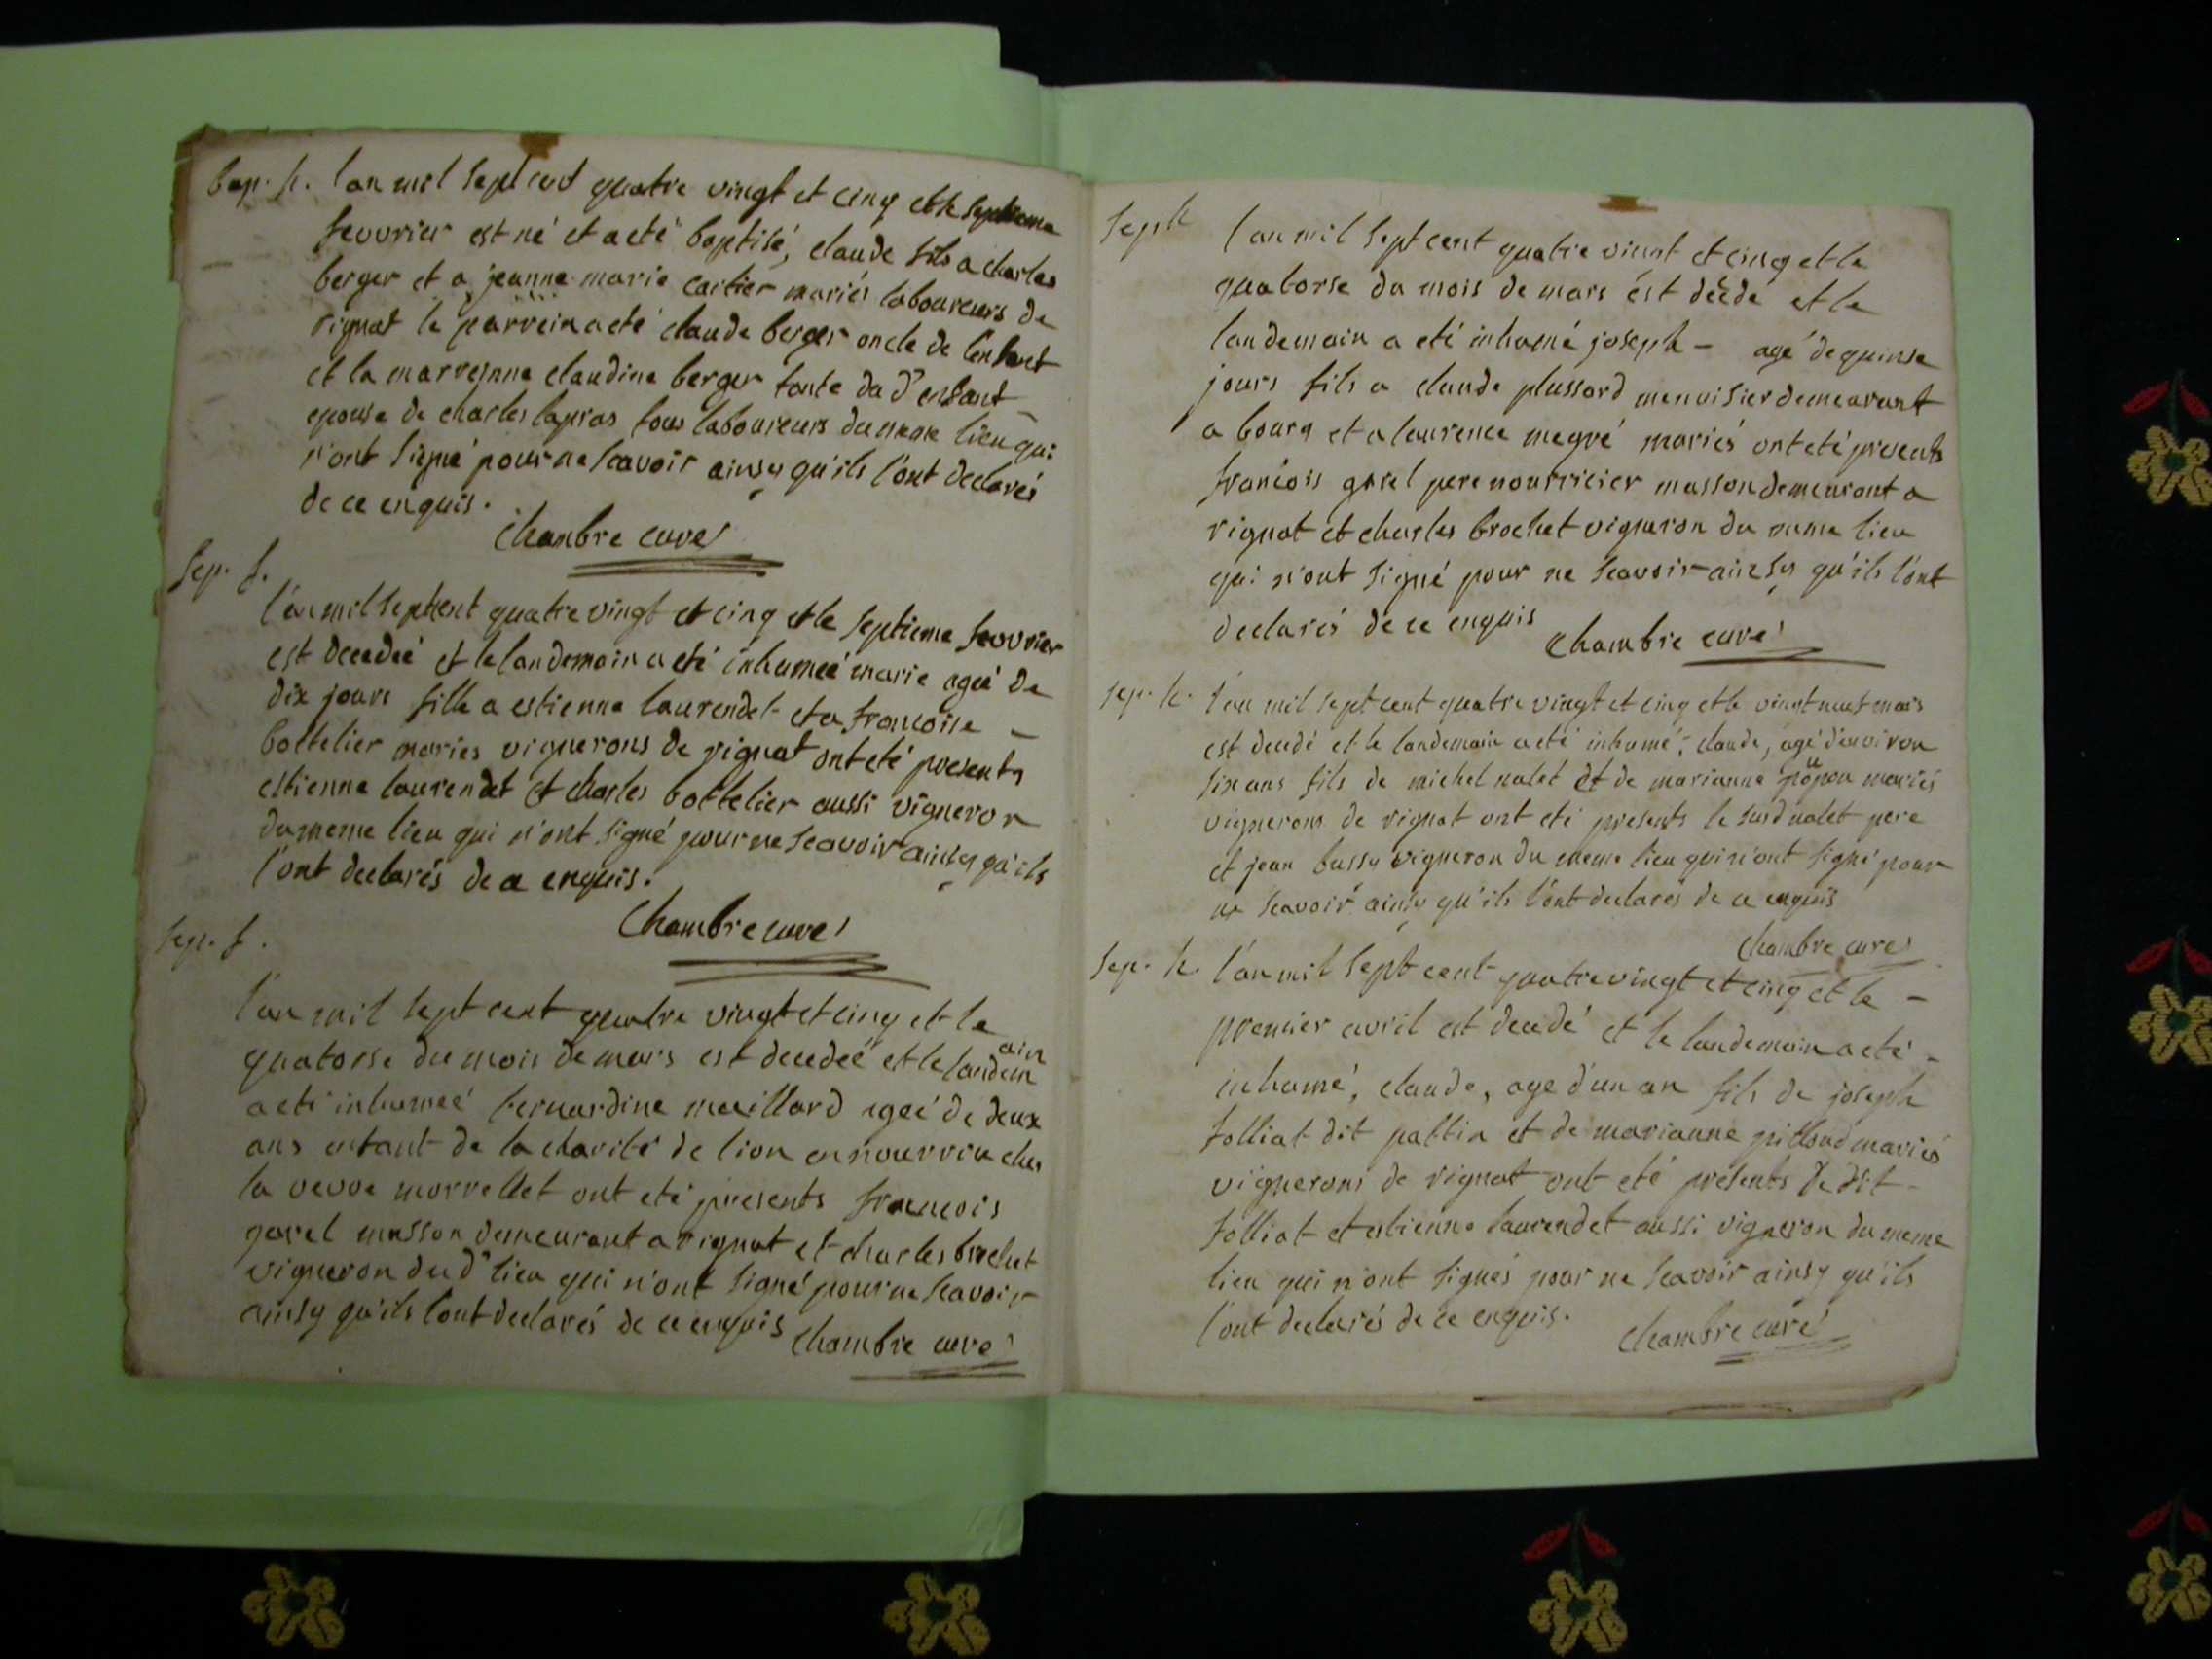 Bap. h. l'an mil sept cent quatre vingt et cinq et le septieme
fevvrier est né et a eté baptisé, claude fils a charles
berger et a jeanne marie cartier mariés laboureurs de
rignat le parrein a eté claude berger oncle de l'enfant
et la marreinne claudine berger tante du dt enfant
epouse de charles lapras tous laboureurs du meme lieu qui
n'ont signé pour ne scavoir ainsy qu'ils l'ont declarés
de ce enquis.
Chambre curé
Sep. f.
l'an mil sept cent quatre vingt et cinq et le septieme fevvrier
est decedeé et le landemain a eté inhumeé marie ageé de
dix jours fille a estienne laurendet et a francoise
bottelier mariés vignerons de rignat ont eté presents
estienne laurendet et charles bottelier aussi vigneron
du meme lieu qui n'ont signé pour ne scavoir ainsy qu'ils
l'ont declarés de ce enquis.
Chambre curé
Sep. f.
l'an mil sept cent quatre vingt et cinq et le
quatorse du mois de mars est decedeé et le landemain
a eté inhumeé bernardine maillard ageé de deux
ans enfant de la charité de lion en nourrin ches
la vevve morrellet ont eté presents francois
gavel masson demeurant a rignat et charles brochet
vigneron du dt lieu qui n'ont signé pour ne scavoir
ainsy qu'ils l'ont declarés de ce enquis Chambre curé
Sep h l'an mil sept cent quatre vint et cinq et le
quatorse du mois de mars est decedé et le
landemain a eté inhumé joseph - agé de quinse
jours fils a claude plussard menuisier demeurant
a bourg et a laurence megré mariés ont eté presents
francois gavel pere nourricier masson demeurant a
rignat et charles brochet vigneron du meme lieu
qui n'ont signé pour ne scavoir ainsy qu'ils l'ont
declarés de ce enquis Chambre curé
sep. h. l'an mil sept cent quatre vingt et cinq et le vint neuf mars
est decedé et le landemain a eté inhumé, claude, agé d'environ
six ans fils de michel nalet et de marianne mariés
vignerons de rignat ont eté presents le sus d nalet pere
et jean bussy vigneron du meme lieu qui n'ont signé pour
ne scavoir ainsy qu'ils l'ont declarés de ce enquis
Chambre curé
Sep. h. l'an mil sept cent quatre vingt et cinq et le -
premier avril est decedé et le landemain a eté -
inhumé, claude, age d'un an fils de joseph
folliat dit pattin et de marianne pilloud mariés
vignerons de rignat ont eté presents le dit -
folliat et estienne laurendet aussi vigneron du meme
lieu qui n'ont signés pour ne scavoir ainsy qu'ils
l'ont declarés de ce enquis.
Chambre curé